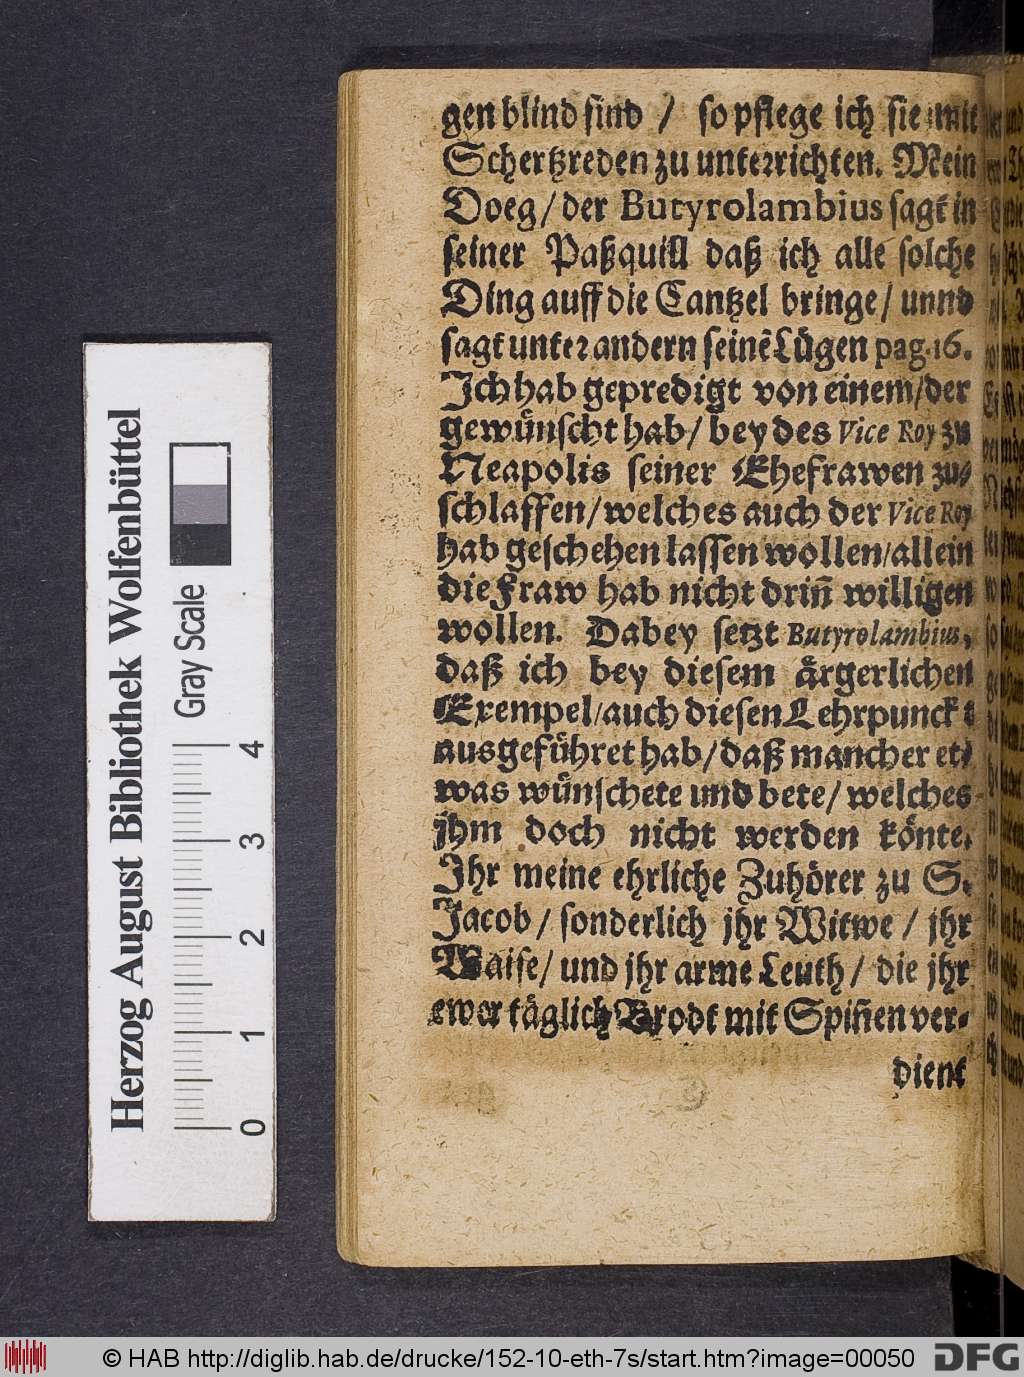 gen blind sind / so pflege ich sie mit
Schertzreden zu unterrichten. Mein
Doeg / der Butyrolambius sagt in
seiner Paßquill daß ich alle solche
Ding auff die Cantzel bringe / unnd
sagt unter andern seinẽ Lügen pag. 16.
Ich hab gepredigt von einem / der
gewünscht hab / bey des Vice Roy zu
Neapolis seiner Ehefrawen zu-
schlaffen / welches auch der Vice Roy
hab geschehen lassen wollen / allein
die Fraw hab nicht driñ willigen
wollen. Dabey setzt Butyrolambius,
daß ich bey diesem ärgerlichen
Exempel / auch diesen Lehrpunckt
ausgeführet hab / daß mancher et-
was wünschete und bete / welches
jhm doch nicht werden könte.
Ihr meine ehrliche Zuhörer zu S.
Jacob / sonderlich jhr Witwe / jhr
Waise / und jhr arme Leuth / die jhr
ewer täglich Brodt mit Spiñen ver-
dient
Herzog August Bibliothek Wolfenbüttel
Gray Scale
0 1 2 3 4
© HAB http://diglib.hab.de/drucke/152-10-eth-7s/start.htm?image=00050
DFG